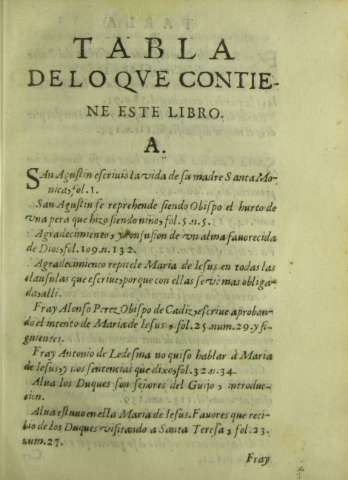 TABLA
DE LO QVE CONTIE-
NE ESTE LIBRO.
A.
SAn Agustin escriuio la vida de su madre Santa Mo-
nica, fol. 1.
San Agustin se reprehende siendo Obispo el hurto de
vna pera que hizo siendo niño, fol. 5. n. 5.
Agradecimiento, y confusion de vn alma fauorecida
de Dios, fol. 109. n. 132.
Agradecimiento repitele Maria de Iesus en todas las
clausulas que escriue, porque con ellas se vè mas obliga-
da, alli.
Fray Alonso Perez, Obispo de Cadiz, escriue aproban-
do el intento de Maria de Iesus, fol. 25. num. 29. y si-
guientes.
Fray Antonio de Ledesma no quiso hablar à Maria
de Iesus, y sentencias que dixo, fol. 32. n. 34.
Alua los Duques son señores del Guijo, introduc-
cion.
Alua estuuo en ella Maria de Iesus. Fauores que reci-
bio de los Duques visitando a Santa Teresa, fol. 23.
num. 27.
Fray